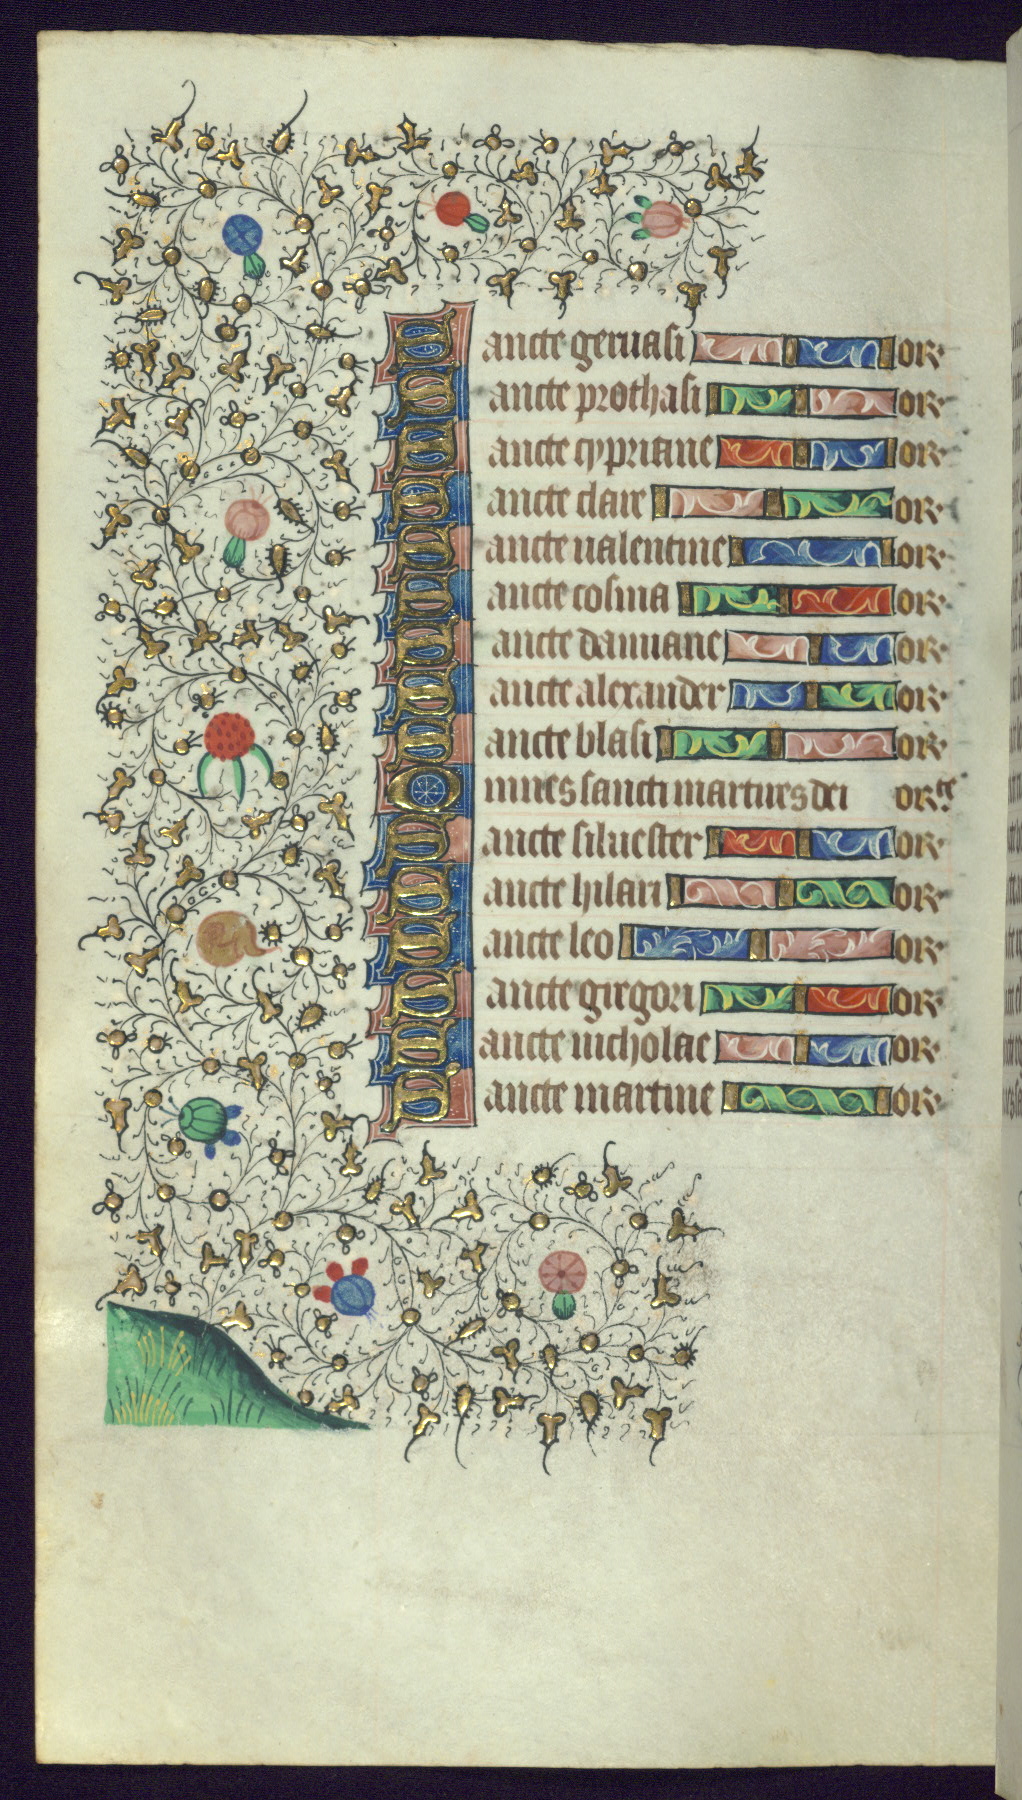 Sancte geruasi or
Sancte prothasi or
Sancte cypriane or
Sancte clare or
Sancte ualentine or
Sancte cosma or
Sancte damiane or
Sancte alexander or
Sancte blasi or
Omnes sancti martires dei orte
Sancte siluester or
Sancte hilari or
Sancte leo or
Sancte gregori or
Sancte nicholae or
Sancte martine or